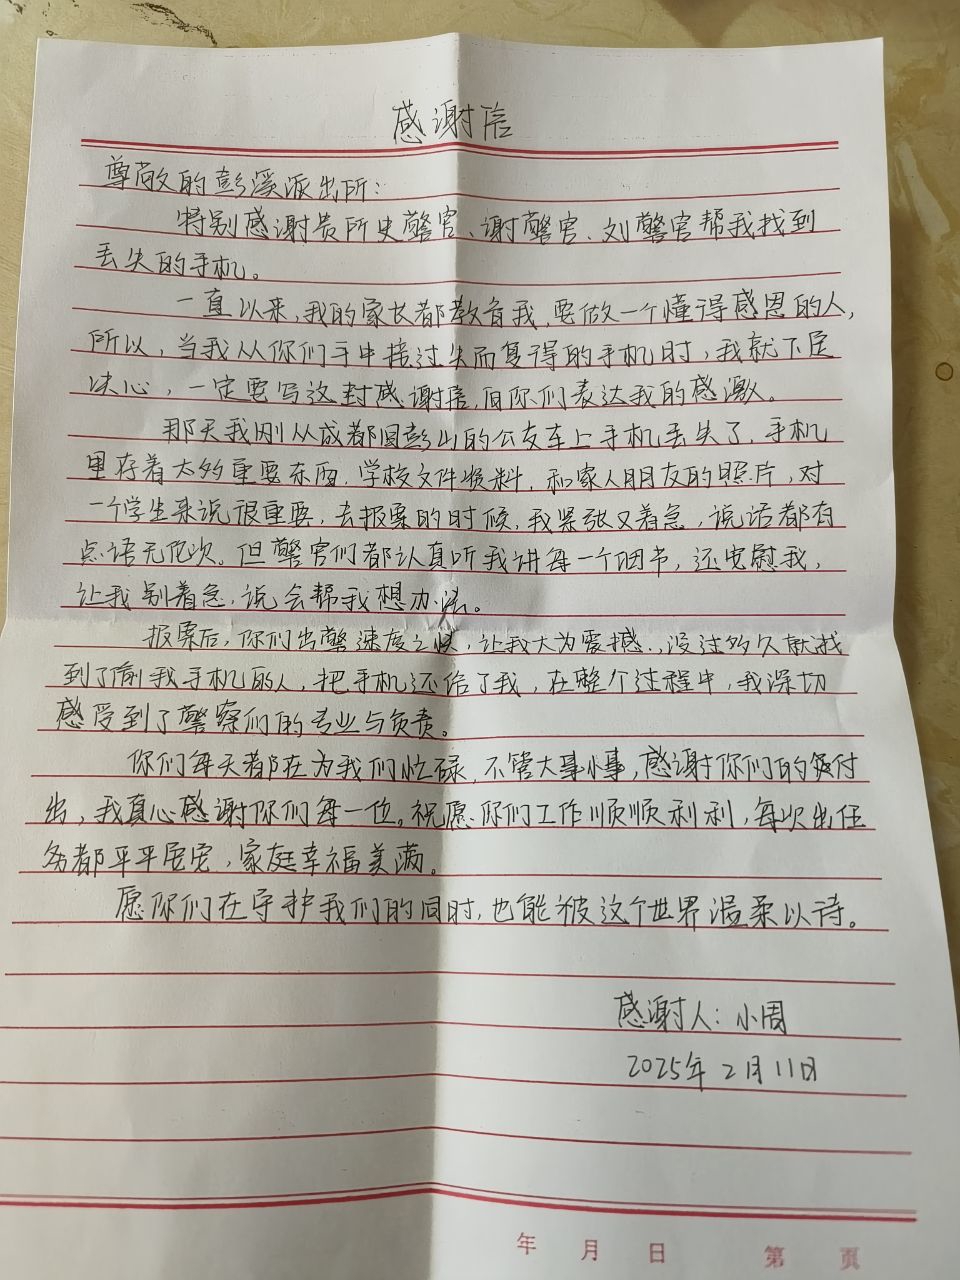 感谢信
尊敬的彭溪派出所：
特别感谢贵所史警官、谢警官、刘警官帮我找到
丢失的手机。
一直以来，我的家长都教育我，要做一个懂得感恩的人，
所以，当我从你们手中接过失而复得的手机时，我就下定
决心，一定要写这封感谢信，向你们表达我的感激。
那天我刚从成都回彭山的公交车上手机丢失了，手机
里存着太多重要东西，学校文件资料，和家人朋友的照片，对
一个学生来说很重要，去报案的时候，我紧张又着急，说话都有
点语无伦次。但警官们都认真听我讲每一个细节，还安慰我，
让我别着急，说会帮我想办法。
报案后，你们出警速度之快，让我大为震撼，没过多久就找
到了偷我手机的人，把手机还给了我，在整个过程中，我深切
感受到了警察们的专业与负责。
你们每天都在为我们忙碌，不管大事小事，感谢你们的付
出，我真心感谢你们每一位。祝愿你们工作顺顺利利，每次出任
务都平平安安，家庭幸福美满。
愿你们在守护我们的同时，也能被这个世界温柔以待。
感谢人：小周
2025年2月11日
年 月 日 第 页